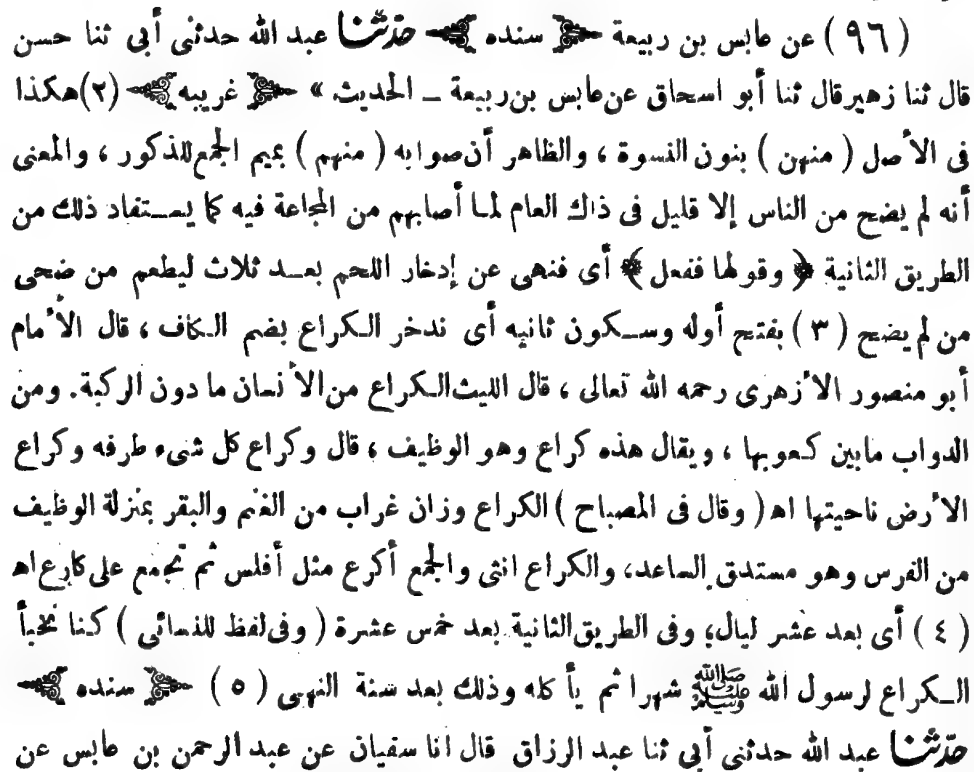 (٩٦) عن عابس بن ربيعة ﴿ سنده ﴾ حدثنا عبد الله حدثنى أبى ثنا حسن
قال ثنا زهير قال ثنا أبو اسحاق عن عابس بن ربيعة ــ الحديث » ﴿ غريبه ﴾ (٢) هكذا
فى الأصل ( منهن ) بنون النسوة ، والظاهر أن صوابه ( منهم ) بميم الجمع للذكور ، والمعنى
أنه لم يضح من الناس إلا قليل فى ذاك العام لما أصابهم من المجاعة فيه كما يستفاد ذلك من
الطريق الثانية ﴿ وقولها ففعل ﴾ أى فنهى عن إدخار اللحم بعد ثلاث ليطعم من ضحى
من لم يضح (٣) بفتح أوله وسكون ثانيه أى ندخر الكراع بضم الكاف ، قال الأمام
أبو منصور الأزهرى رحمه الله تعالى ، قال الليث الكراع من الأنسان ما دون الركبة. ومن
الدواب مابين كعوبها ، ويقال هذه كراع وهو الوظيف ، قال وكراع كل شىء طرفه وكراع
الأرض ناحيتها اه ( وقال فى المصباح ) الكراع وزان غراب من الغنم والبقر بمنزلة الوظيف
من الفرس وهو مستدق الساعد، والكراع انثى والجمع أكرع مثل أفلس ثم تجمع على كارع اه
(٤) أى بعد عشر ليال، وفى الطريق الثانية بعد خمس عشرة ( وفى لفظ للنسائى ) كنا نخبأ
الكراع لرسول الله ﷺ شهرا ثم يأكله وذلك بعد سنة النهى (٥) ﴿ سنده ﴾
حدثنا عبد الله حدثنى أبى ثنا عبد الرزاق قال انا سفيان عن عبد الرحمن بن عابس عن